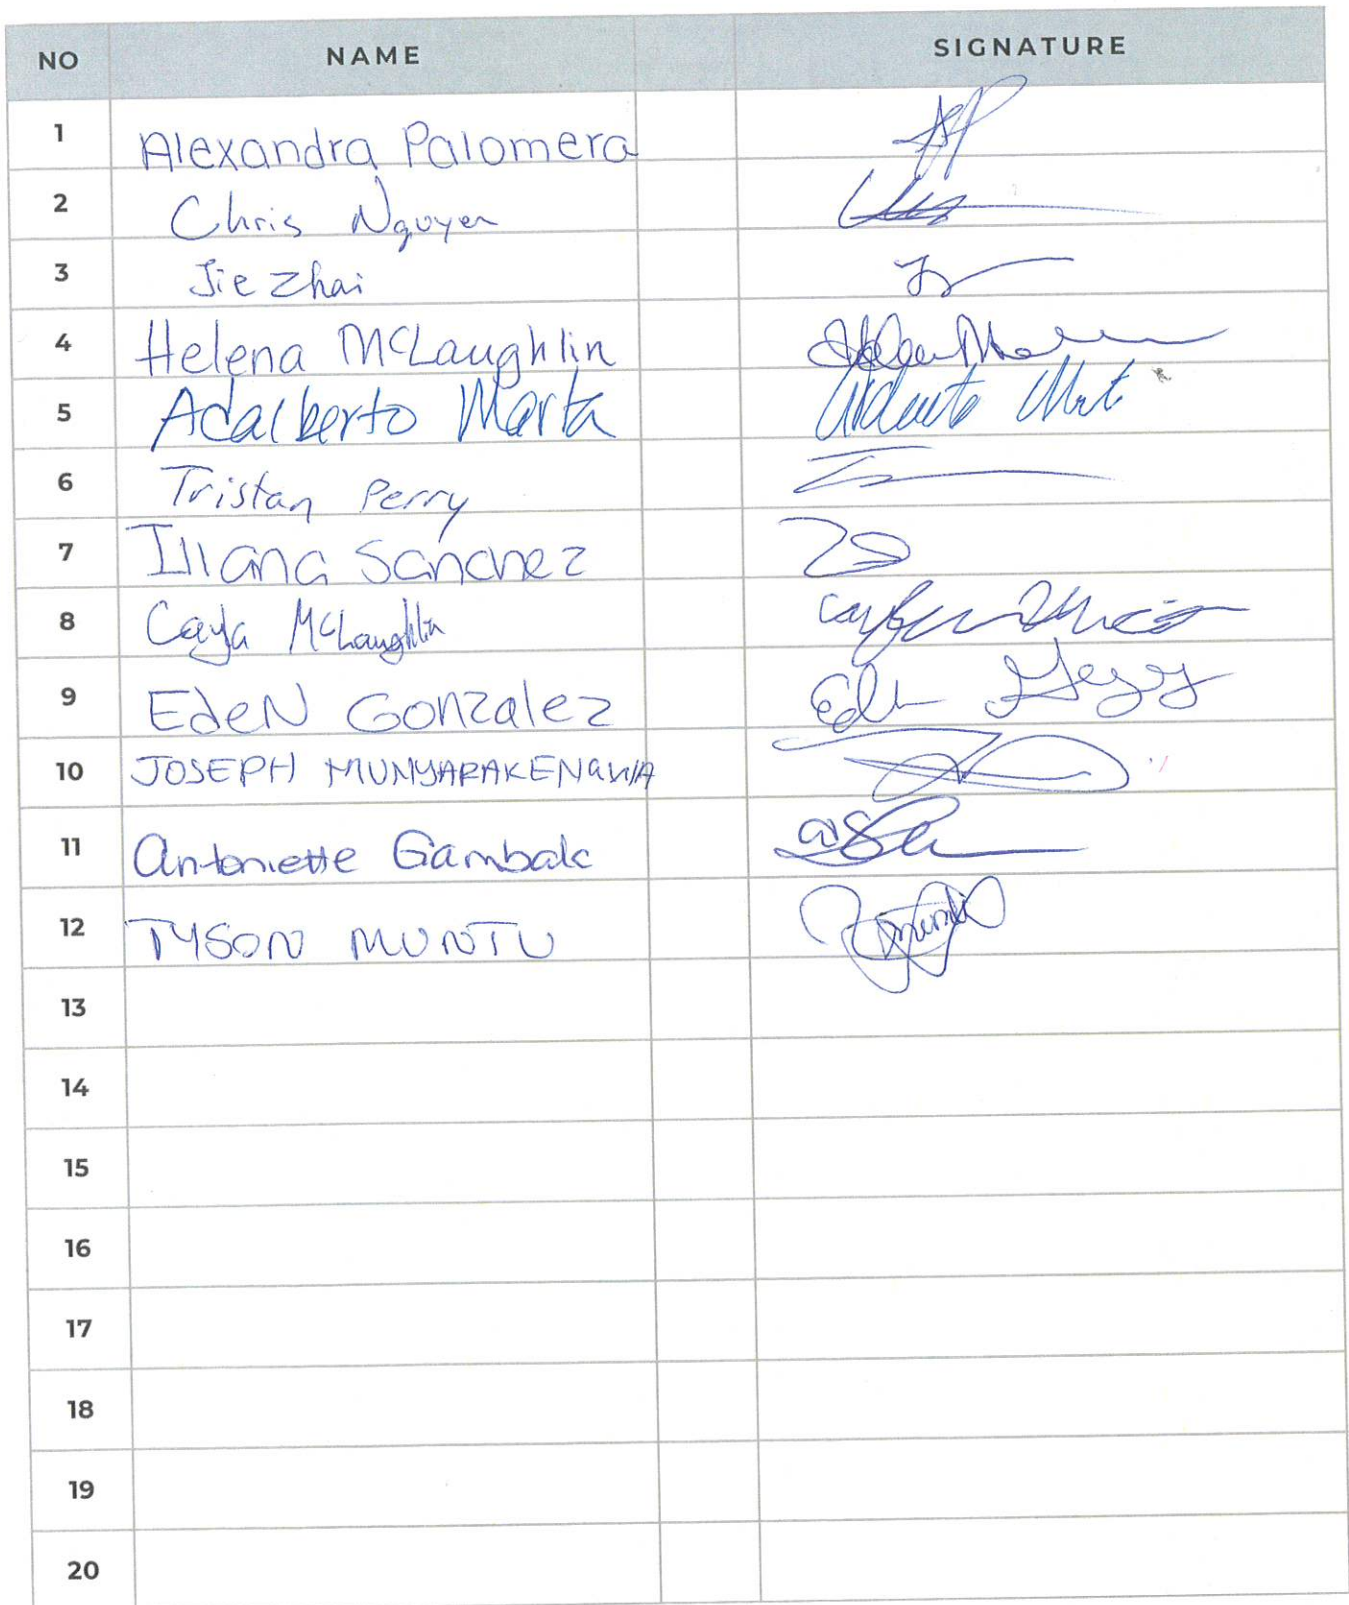 NO NAME SIGNATURE
1 Alexandra Palomera AP
2 Chris Nguyen
3 Jie Zhai
4 Helena McLaughlin
5 Adalberto Marta
6 Tristan Perry
7 Illana Sanchez
8 Cayla McLaughlin
9 EdeN Gonzalez
10 JOSEPH
11 Antoniette Gambala
12 TYSON MUNTU
13
14
15
16
17
18
19
20